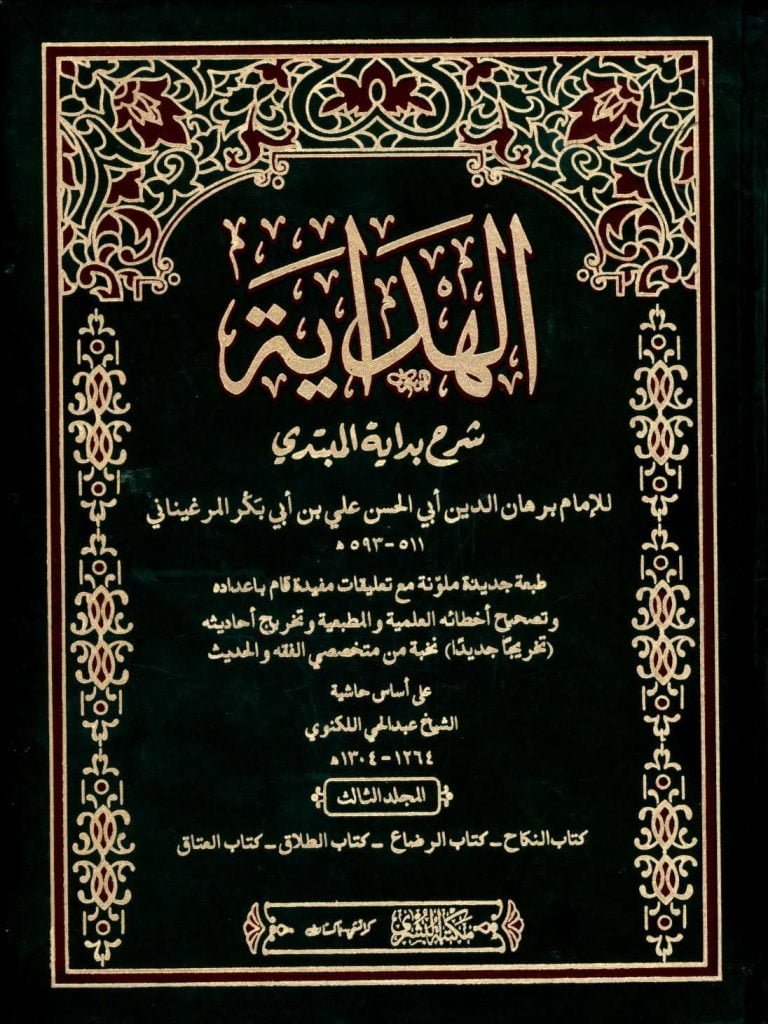 الهداية
شرح بداية المبتدي
للإمام برهان الدين أبي الحسن علي بن أبي بكر المرغيناني
٥١١-٥٩٣ه
طبعة جديدة ملوّنة مع تعليقات مفيدة قام باعداده
وتصحيح أخطائه العلمية والمطبعية وتخريج أحاديثه
(تخريجًا جديدًا) نخبة من متخصصي الفقه والحديث
على أساس حاشية
الشيخ عبدالحي اللكنوي
١٢٦٤-١٣٠٤ه
المجلد الثالث
كتاب النكاح - كتاب الرضاع - كتاب الطلاق - كتاب العتاق
مكتبة البشرى كراتشي باكستان